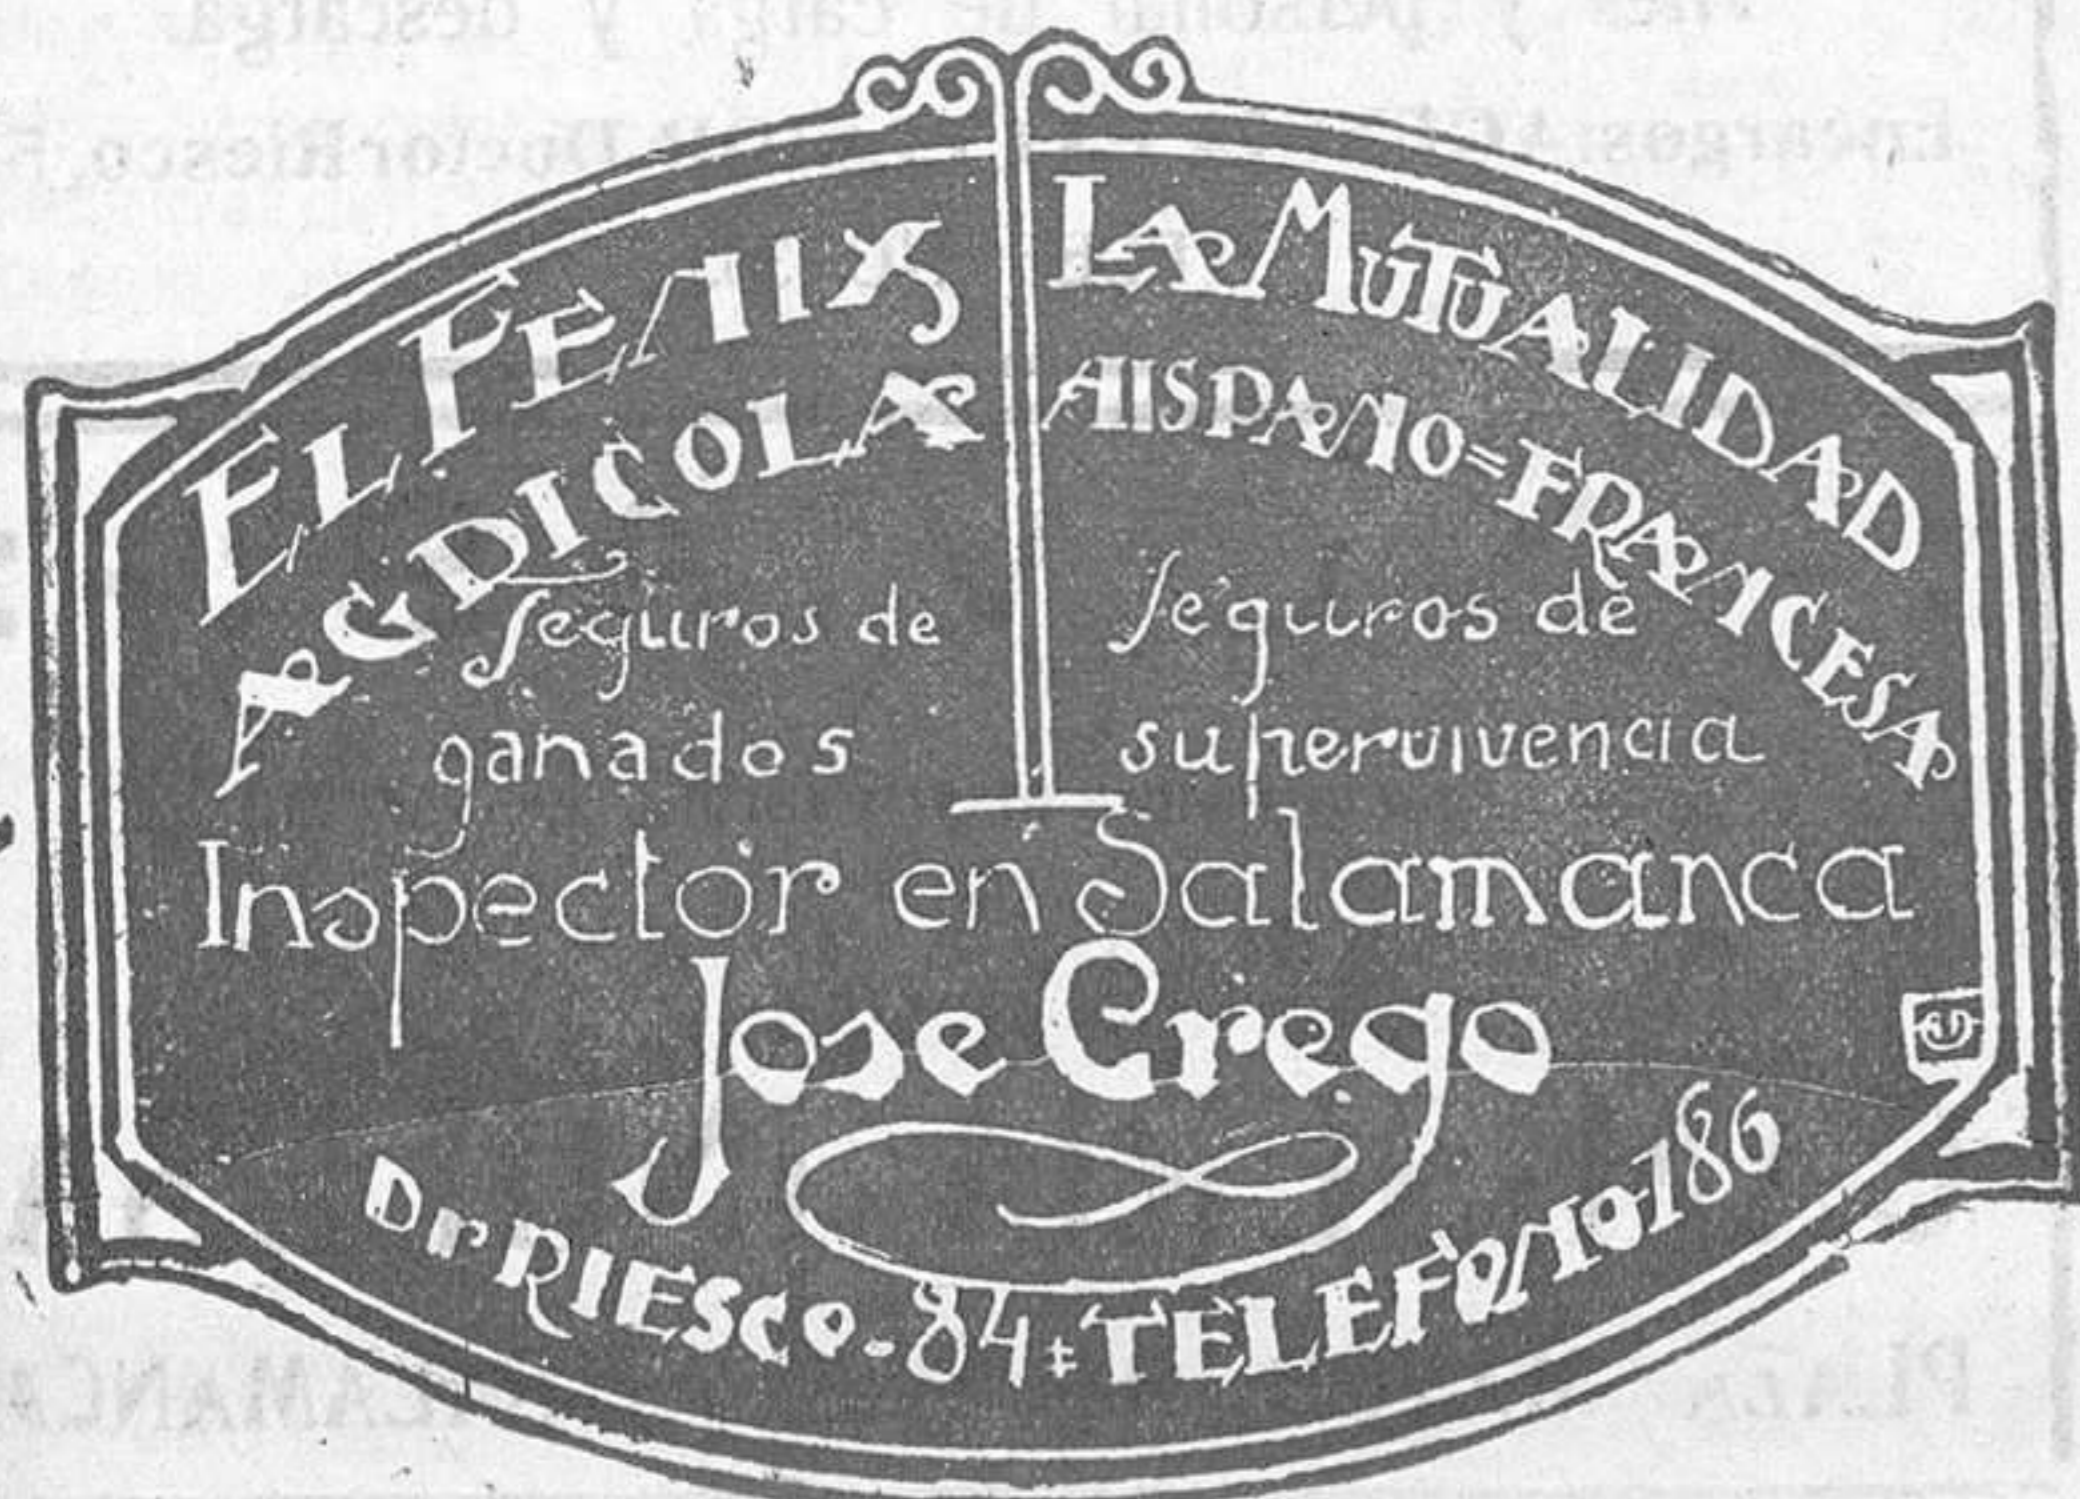 EL FENIX
AGRICOLA
Seguros de
ganados
LA MUTUALIDAD
HISPANO=FRANCESA
Seguros de
supervivencia
Inspector en Salamanca
Jose Crego
Dr RIESCO.-84=TELEFONO-186
descarga.
Doctor Riesco